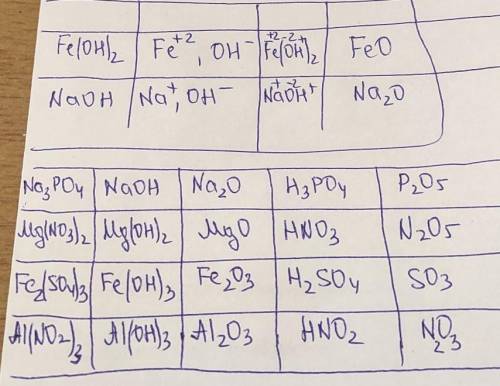 Fe(OH)2 Fe+2, OH− +2 −2 + Fe(OH)2 FeO
NaOH Na+, OH− + −2 + NaOH Na2O
Na3PO4 NaOH Na2O H3PO4 P2O5
Mg(NO3)2 Mg(OH)2 MgO HNO3 N2O5
Fe2(SO4)3 Fe(OH)3 Fe2O3 H2SO4 SO3
Al(NO2)3 Al(OH)3 Al2O3 HNO2 N2O3